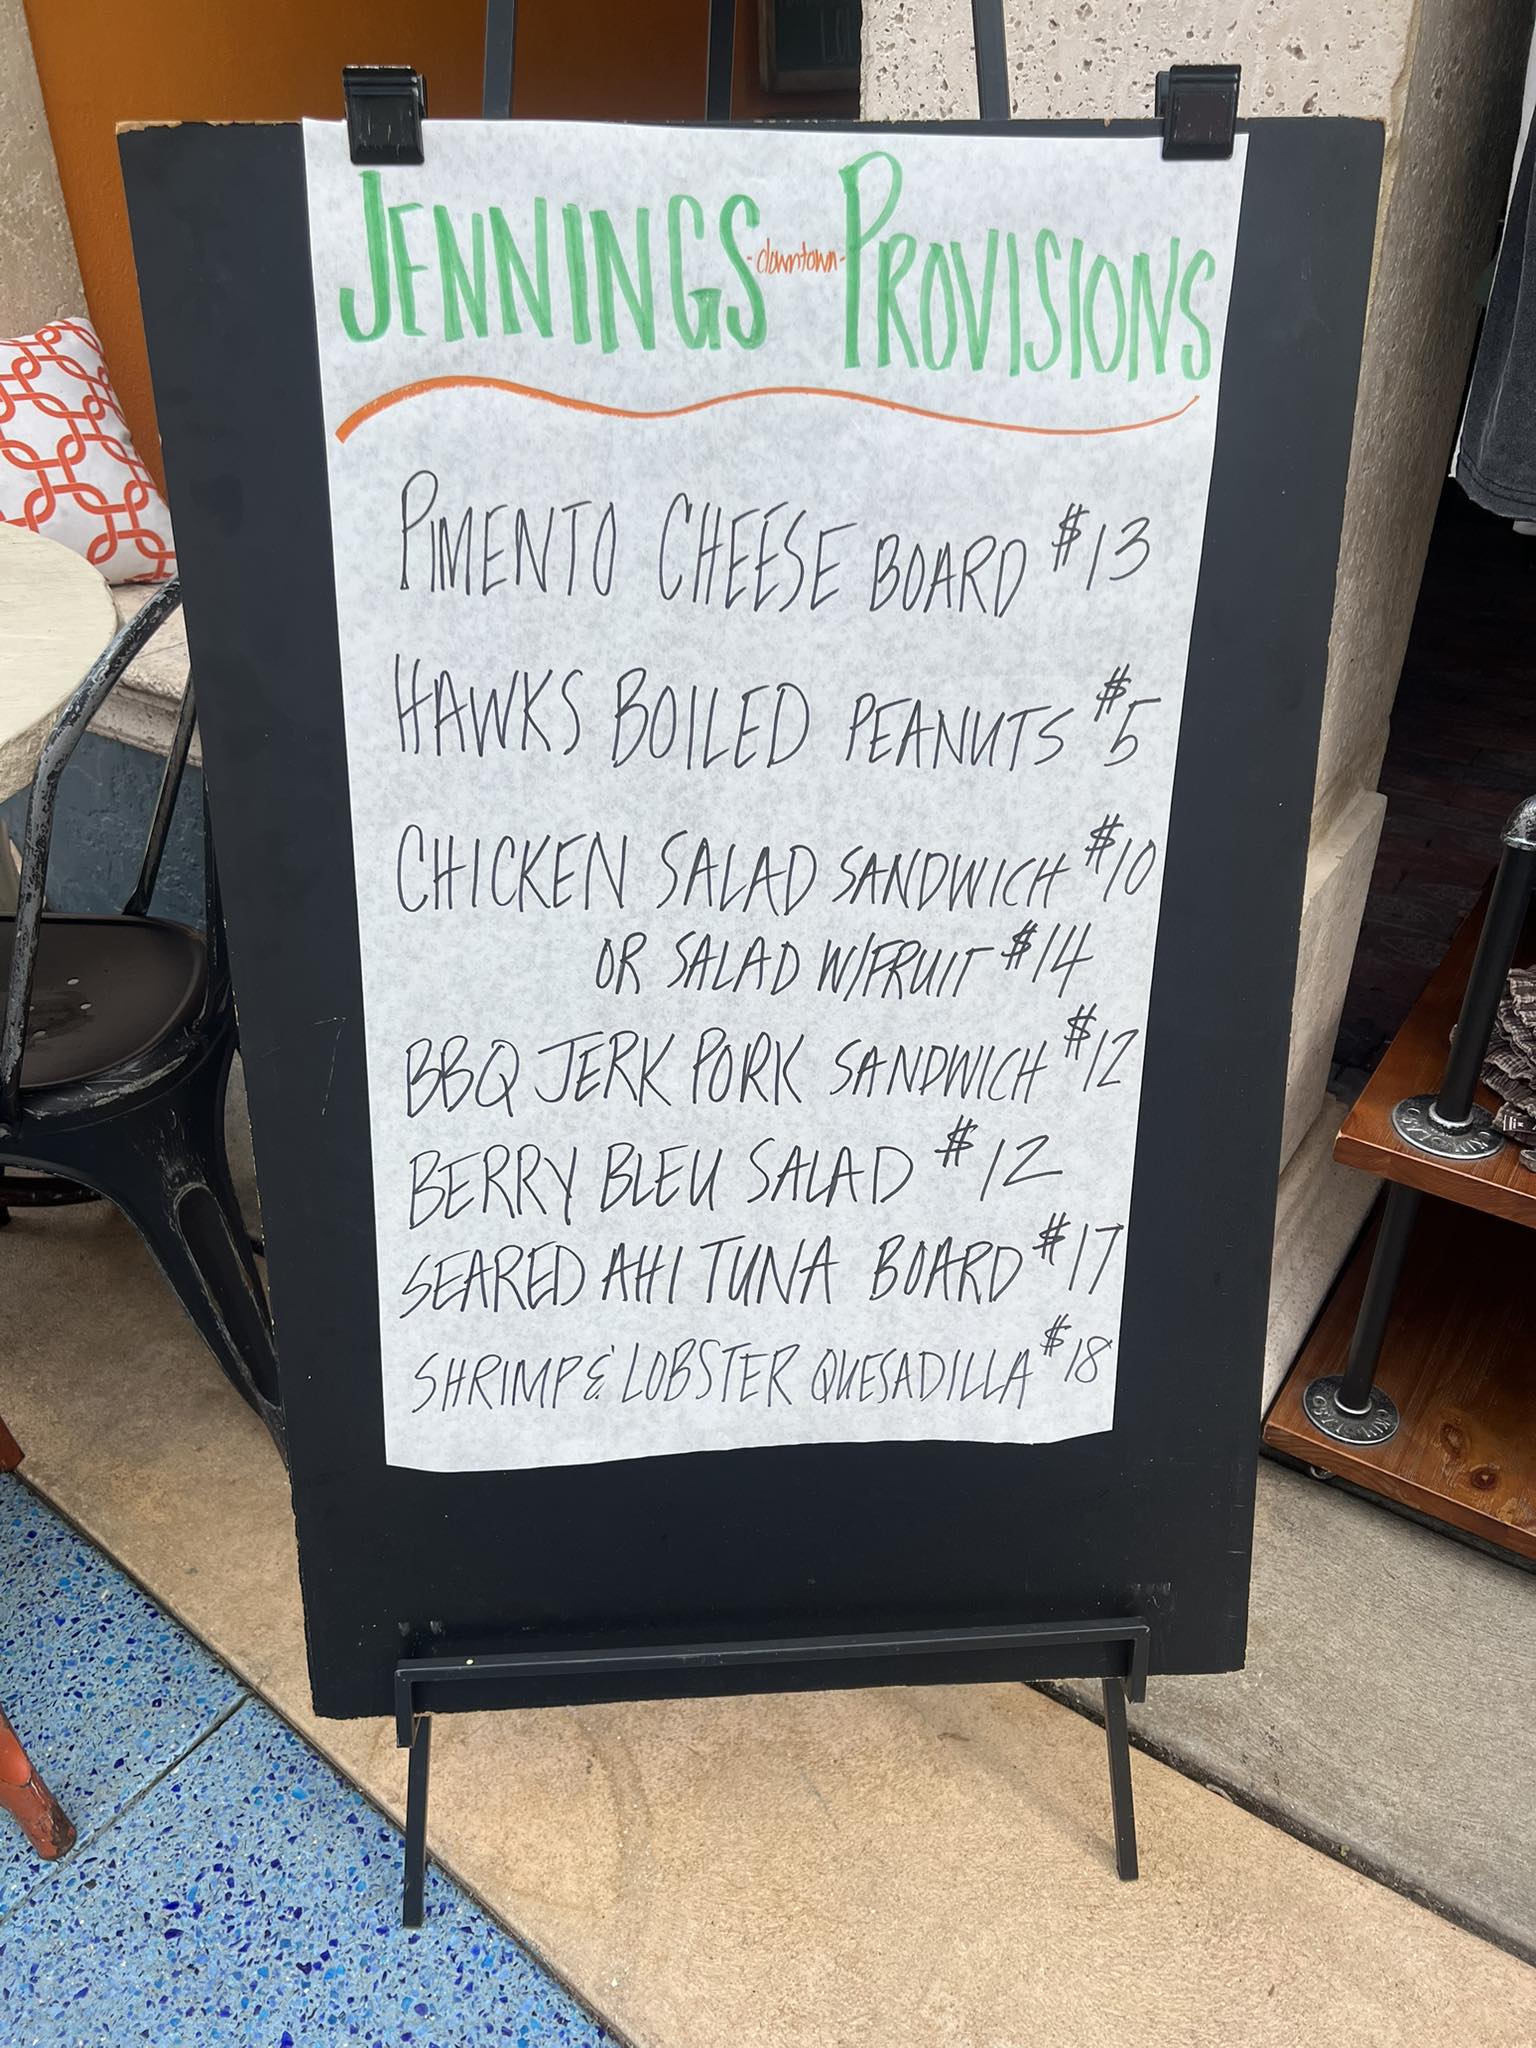 JENNINGS -downtown- PROVISIONS
PIMENTO CHEESE BOARD $13
HAWKS BOILED PEANUTS $5
CHICKEN SALAD SANDWICH $10
OR SALAD W/FRUIT $14
BBQ JERK PORK SANDWICH $12
BERRY BLEU SALAD $12
SEARED AHI TUNA BOARD $17
SHRIMP & LOBSTER QUESADILLA $18